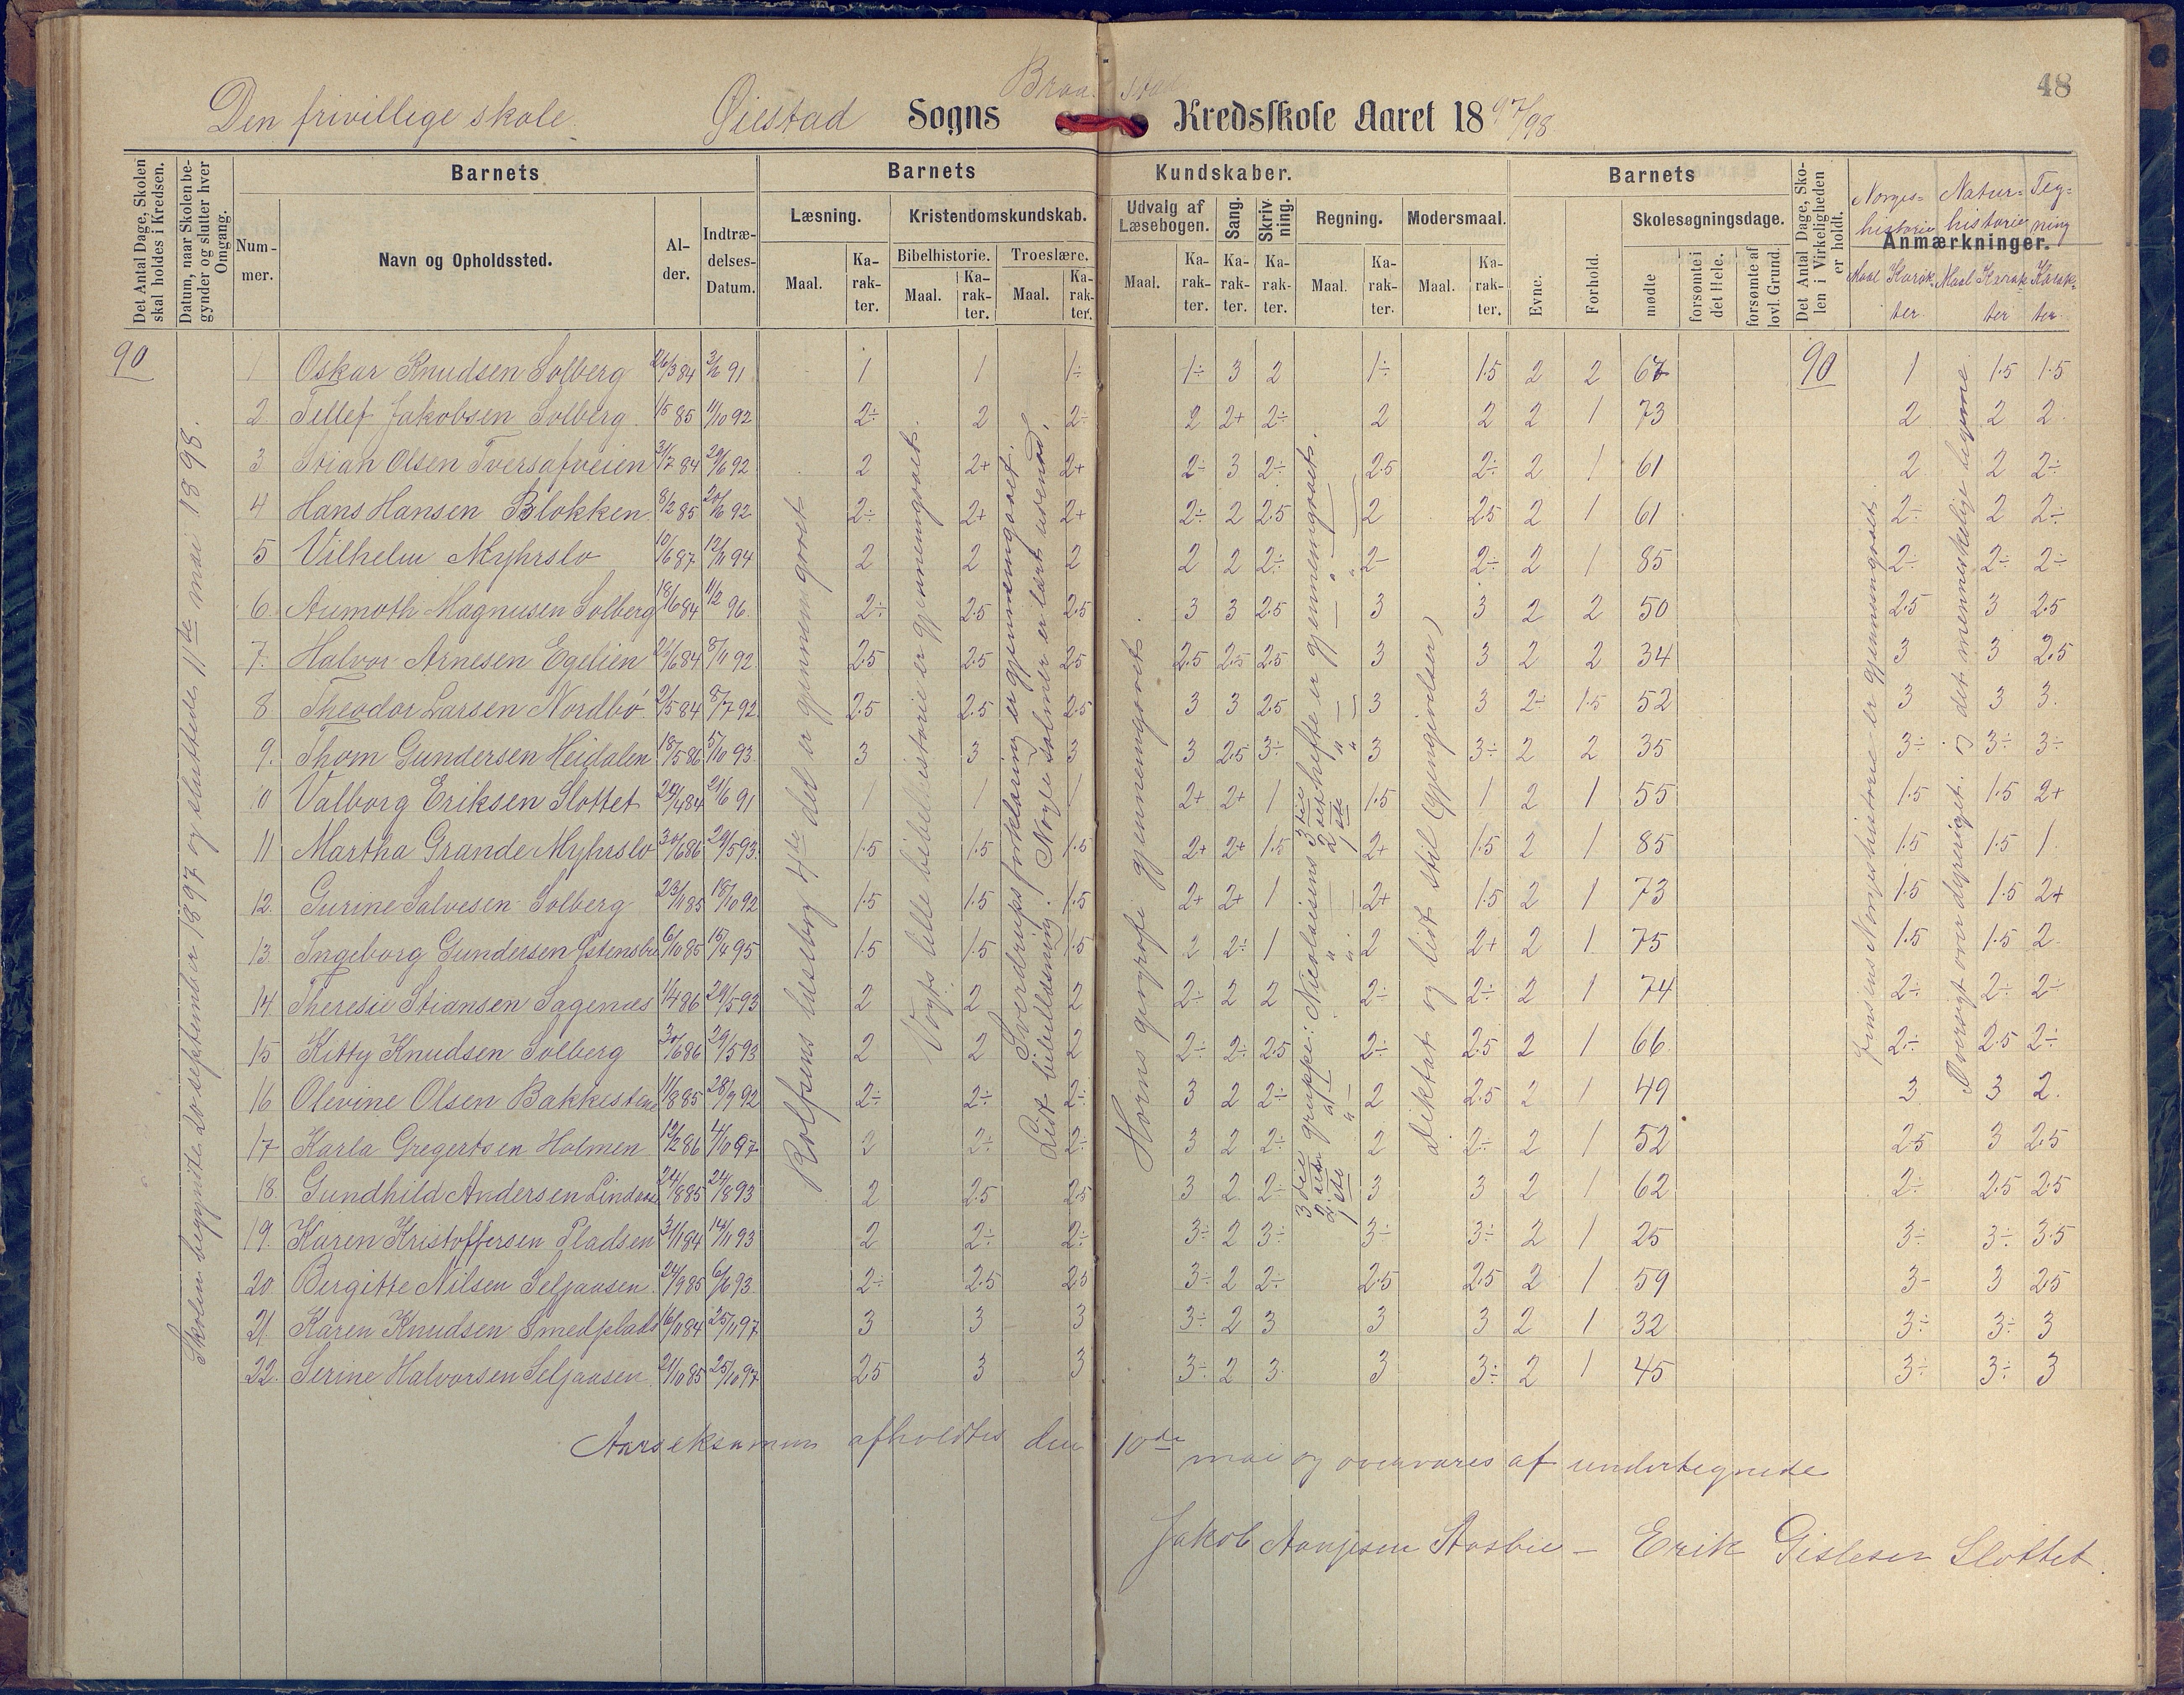 48
Braa stad
Den frivillege skole. Øiestad Sogns Kredsskole Aaret 1897/98
Det Antal Dage, Skolen skal holdes i Kredsen.
Datum, naar Skolen begynder og slutter hver Omgang.
Barnets
Num-mer.
Navn og Opholdssted.
Al-der.
Indtræ-delses-Datum.
Barnets Kundskaber.
Læsning.
Maal. Ka-rak-ter.
Kristendomskundskab.
Bibelhistorie. Troeslære.
Maal. Ka-rak-ter. Maal. Ka-rak-ter.
Udvalg af Læsebogen.
Maal. Ka-rak-ter.
Sang. Ka-rak-ter.
Skriv-ning. Ka-rak-ter.
Regning.
Maal. Ka-rak-ter.
Modersmaal.
Maal. Ka-rak-ter.
Barnets
Evne.
Forhold.
Skolesøgningsdage.
mødte
forsømte i det Hele.
forsømte af lovl. Grund.
Det Antal Dage, Skolen i Virkeligheden er holdt.
Anmærkninger.
Norges= historie Maal Karakter
Natur= historie Maal Karakter
Teg= ning Karakter
90
Skolen begynte 20 september 1897 og sluttede 11te mai 1898.
1 Oskar Knudsen Solberg 26/3 84 3/6 91 1 1 1÷ 1÷ 3 2 1÷ 1.5 2 2 67 90 1 1.5 1.5
2. Tellef Jakobsen Solberg. 1/5 85 11/10 92 2÷ 2 2÷ 2 2+ 2÷ 2 2 2 1 73 2 2 2.
3 Stian Olsen Tversafveien 31/7 84 20/6 92 2 2+ 2+ 2÷ 3 2÷ 2.5 2÷ 2 1 61 2 2 2÷
4 Hans Hansen Blokken 8/2 85 20/6 92 2÷ 2+ 2+ 2÷ 2 2.5 2 2.5 2 1 61 2÷ 2 2÷
5 Vilhelm Myhrslo 10/6 87 12/11 94 2 2 2 2 2 2÷ 2- 2÷ 2 1 85 2÷ 2÷ 2÷
6. Aumoth Magnusen Solberg 18/6 84 11/2 96. 2÷ 2.5 2.5 3 3 2.5 3 3 2 2 50 2.5 3 2.5
7. Halvor Arnesen Egelien 21/6 84 8/11 92. 2.5 2.5 2.5 2.5 2.5 2.5 3 3 2 2 34 3 3 2.5
8. Theodor Larsen Nordbö 2/5 84 8/7 92. 2.5 2.5 2.5 3 3 2.5 3 3 2÷ 1.5 52 3 3 3.
9. Thom Gundersen Heidalen 18/5 86 5/10 93. 3 3 3 3 2.5 3÷ 3 3÷ 2 2 35 3÷ 3÷ 3÷
10 Valborg Eriksen Slottet 29/4 84 21/6 91 1 1 1 2+ 2+ 1 1.5 1 2 1 55 1.5 1.5 2+
11 Martha Grande Myhrslo 30/6 86 29/5 93. 1.5 1.5 1.5 2+ 2+ 1.5 2+ 1.5 2 1 85 1.5 1.5 1.
12. Gurine Salvesen Solberg 23/11 85 18/10 92 1.5 1.5 1.5 2+ 2+ 1 2+ 1.5 2 1 73 1.5 1.5 2+
13. Ingeborg Gundersen Østensbu 6/10 85 15/4 95 1.5 1.5 1.5 2 2÷ 1 2 2+ 2 1. 75 1.5 1.5 2.
14 Theresie Stiansen Sagenæs 1/4 86 29/5 93 2 2 2 2÷ 2 2 2÷ 2÷ 2 1 74 2÷ 2÷ 2÷
15 Kitty Knudsen Solberg 30/6 86 29/5 93 2 2 2 2÷ 2÷ 2.5 2÷ 2.5 2 1 66. 2÷ 2.5 2÷
16 Olevine Olsen Bakkestene 11/8 85 28/9 92 2÷ 2÷ 2÷ 3 2 2÷ 2 2.5 2 1 49 3 3 2.
17 Karla Gregertsen Holmen 12/2 86 4/10 97 2 2÷ 2÷ 3 2 2÷ 2 2÷ 2 1 52 2.5 3 2.5
18. Gundhild Andersen Lindaas 24/8 85 24/8 93 2 2.5 2.5 3 2 2÷ 3 3 2 1 62 2÷ 2.5 2.5
19. Karen Kristoffersen Pladsen 3/11 84 14/11 93 2 2÷ 2÷ 3÷ 2 3÷ 3÷ 3÷ 2 1 25 3÷ 3÷ 3.5
20 Bergitte Nilsen Seljaasen. 24/9 85 6/6 93 2÷ 2.5 2.5 3÷ 2 2÷ 2.5 2.5 2 1 59 3- 3 2.5
21. Karen Knudsen Smedplads 16/11 84 25/11 97 3 3 3 3÷ 2 3 3 3 2 1 32 3÷ 3÷ 3
22. Serine Halvorsen Seljaasen. 21/10 85 25/10 97 2.5 3 3 3÷ 2 3. 3 3÷ 2 1 45 3÷ 3÷ 3
Rolfsens læsebog 4de del er gjennemgaaet
Vogts lille bibelhistorie er gjennemgaaet.
Sverdrups forklaring er gjennemgaaet.
Lidt bibellæsning. Nogle salmer er lært udenad.
Horns geografi gjennemgaaet.
3die 2den 1ste gruppe: Nicolaisens 3die 2det 1ste hefte er gjennemgaaet.
Diktat og lidt stil (gjengivelser)
Jensens Norgeshistorie er gjennemgaaet.
Oversigt over dyreriget. og det menneskelige legeme
Aarseksamen afholdtes den 10de mai og overvares af undertegnede
Jakob Aanjesen Aasbie – Erik Gislesen Slottet.